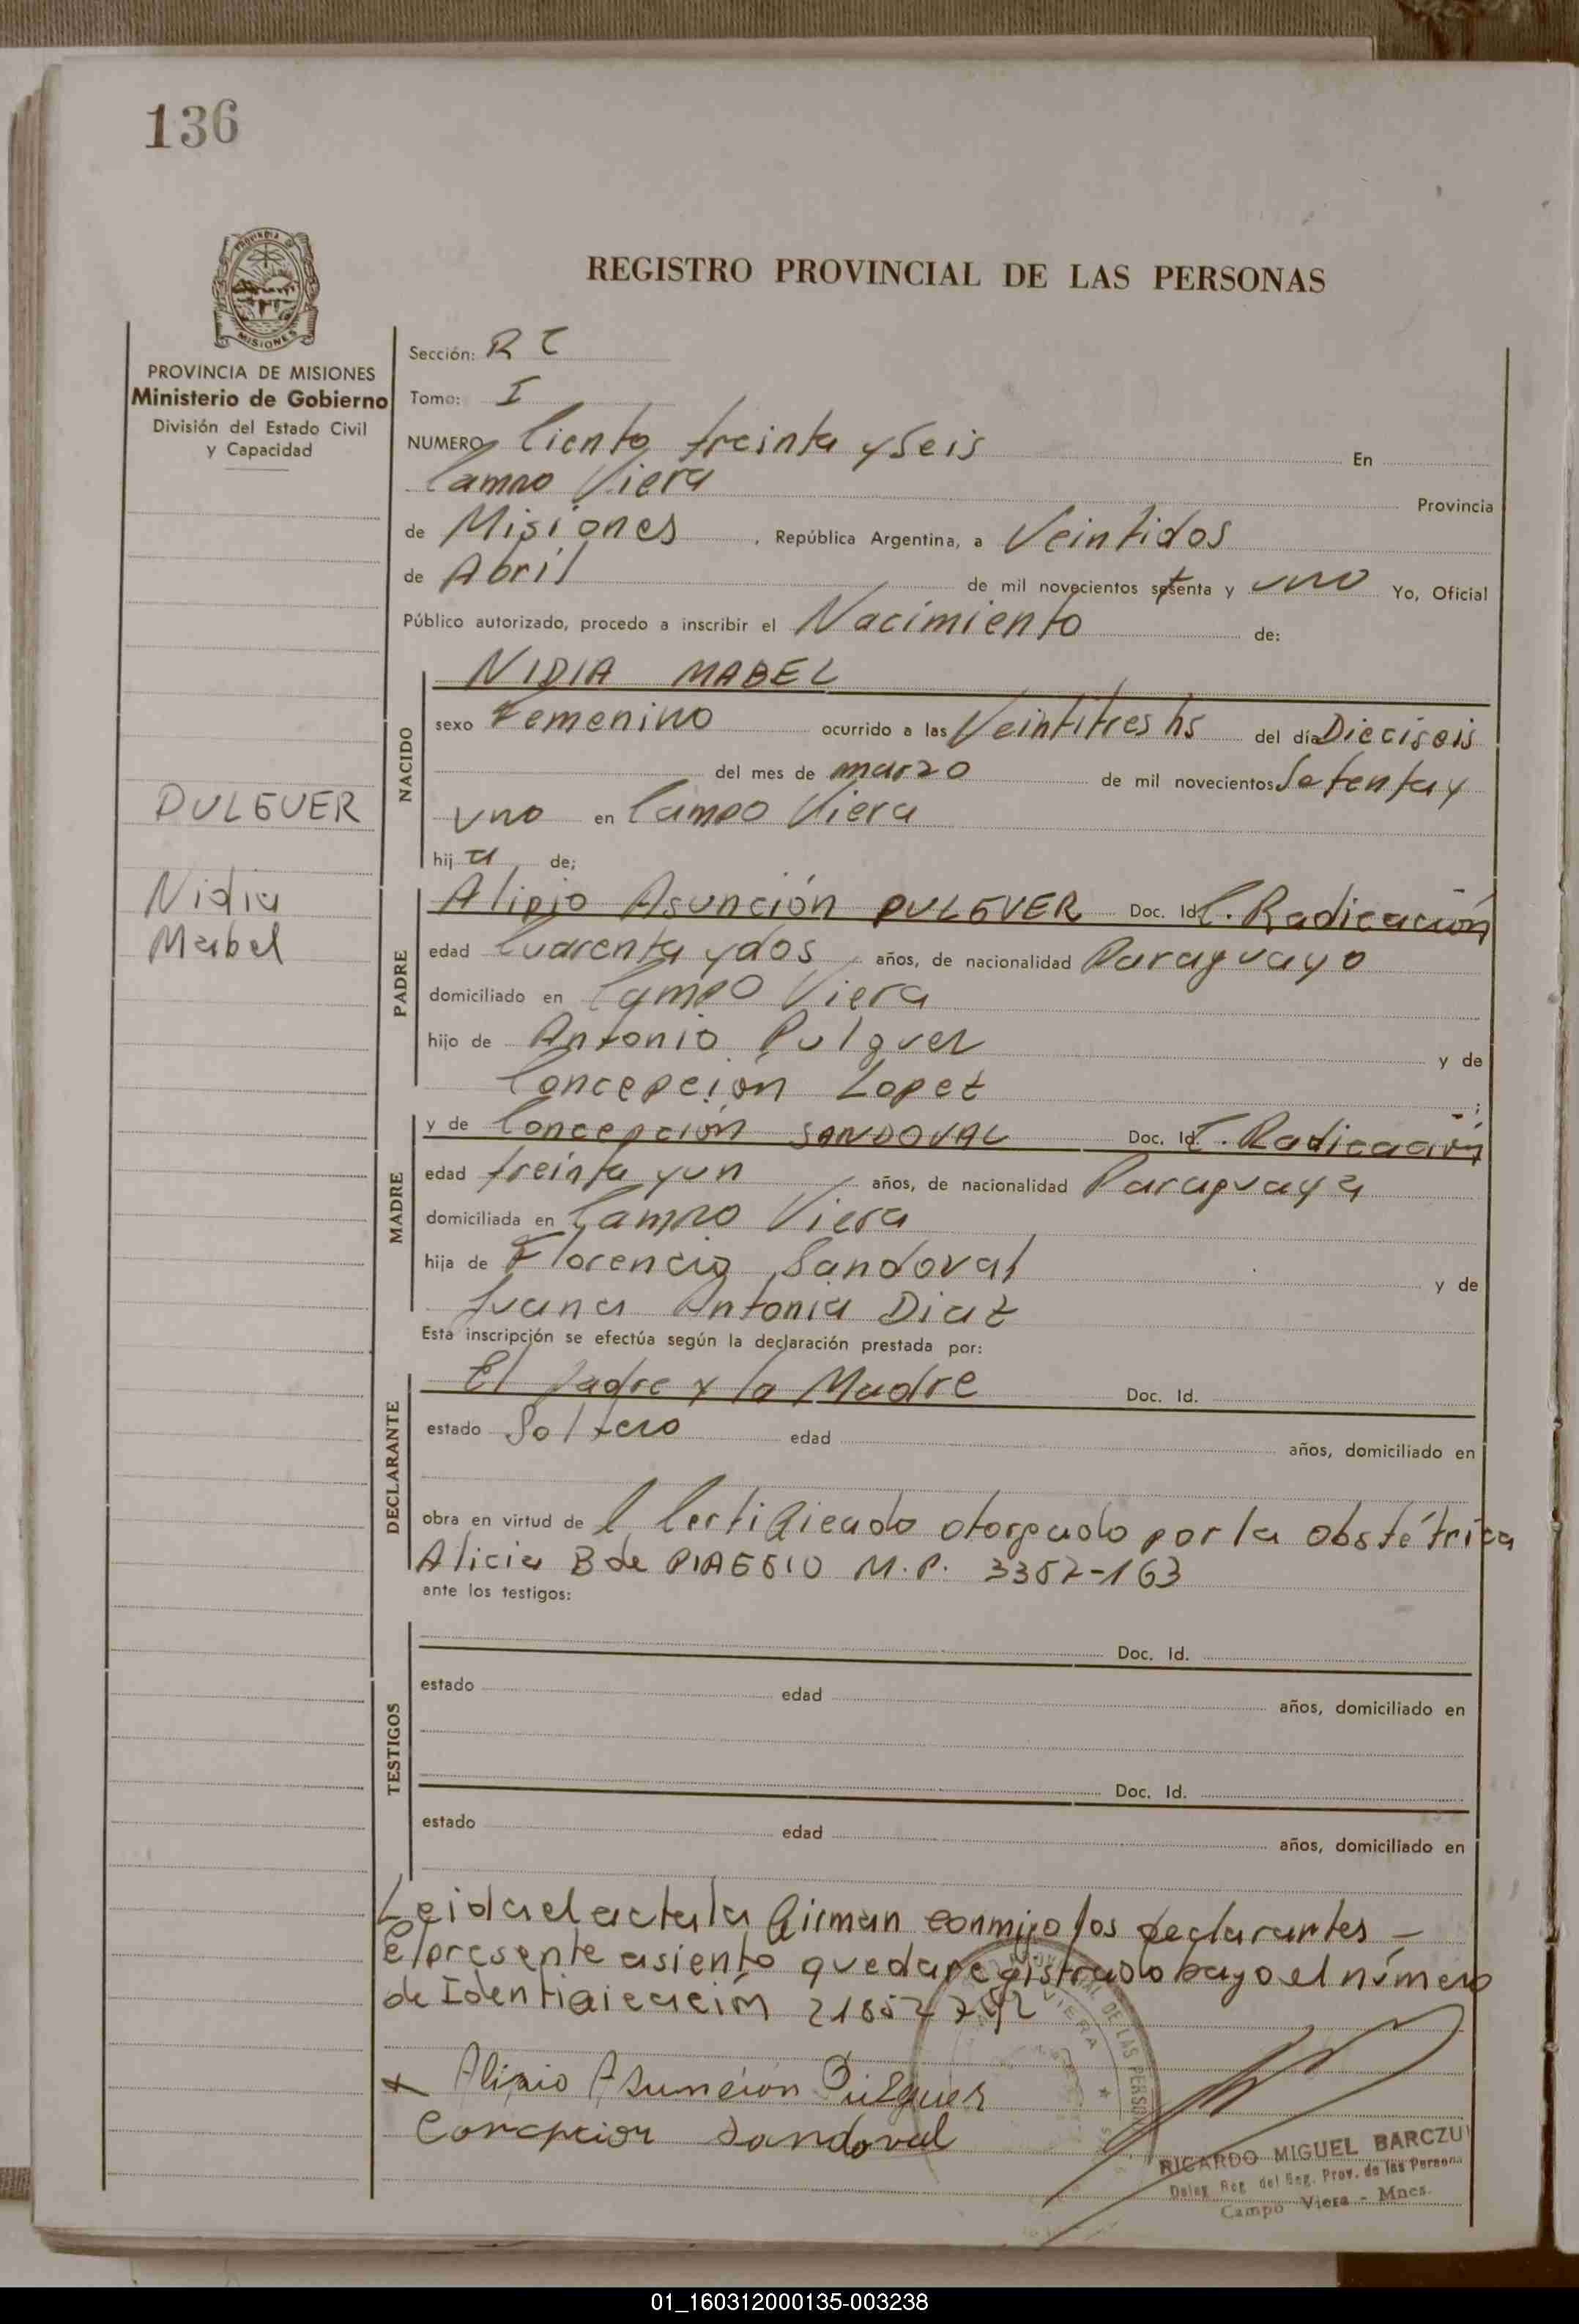 136
REGISTRO PROVINCIAL DE LAS PERSONAS
MISIONES
PROVINCIA DE MISIONES
Ministerio de Gobierno
División del Estado Civil
y Capacidad
Sección: R C
Tomo: I
NUMERO Ciento treinta y seis En
Campo Viera Provincia
de Misiones, República Argentina, a Veintidos
de Abril de mil novecientos setenta y uno Yo, Oficial
Público autorizado, procedo a inscribir el Nacimiento de:
NACIDO
NIDIA MABEL
sexo Femenino ocurrido a las Veintitres hs del día Dieciseis
del mes de marzo de mil novecientos Setenta y
uno en Campo Viera
hij a de;
PULGUER
Nidia
Mabel
PADRE
Alipio Asunción PULGUER Doc. Id. C. Radicación
edad Cuarenta y dos años, de nacionalidad Paraguayo
domiciliado en Campo Viera
hijo de Antonio Pulguer y de
Concepción Lopez ;
MADRE
y de Concepción SANDOVAL Doc. Id. C. Radicación
edad treinta y un años, de nacionalidad Paraguaya
domiciliada en Campo Viera
hija de Florencio Sandoval y de
Juana Antonia Diaz
Esta inscripción se efectúa según la declaración prestada por:
DECLARANTE
El padre y la Madre Doc. Id.
estado Soltero edad años, domiciliado en
obra en virtud de l Certificado otorgado por la obstétrica
Alicia B de PIAGGIO M.P. 3352-163
ante los testigos:
TESTIGOS
Doc. Id.
estado edad años, domiciliado en
Doc. Id.
estado edad años, domiciliado en
Leida el acta la firman conmigo los declarantes —
El presente asiento queda registrado bajo el número
de Identificación
Alipio Asunción Pulguer
Concepcion Sandoval
RICARDO MIGUEL BARCZU
Deleg. Reg. del Reg. Prov. de las Persona
Campo Viera - Mnes.
01_160312000135-003238